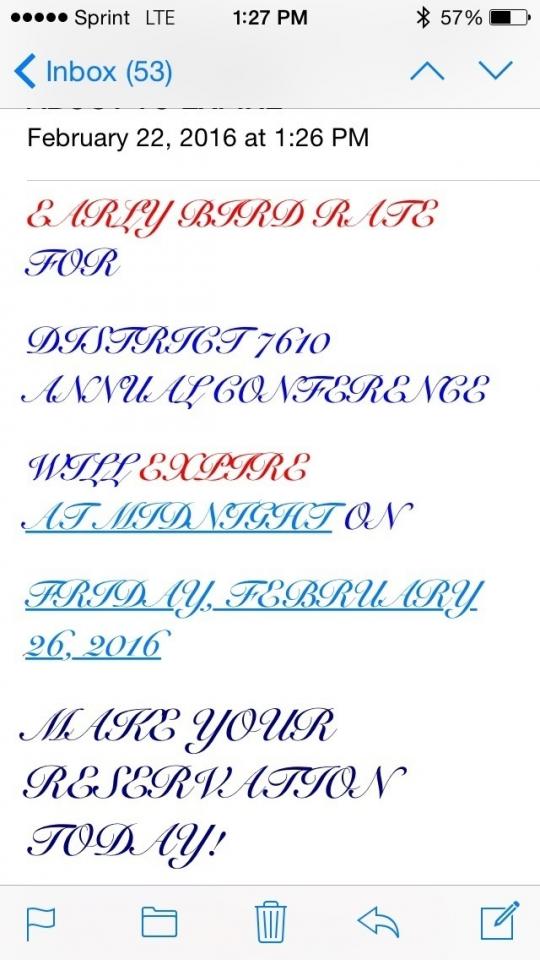 Sprint LTE 1:27 PM 57%
Inbox (53)
ABOUT TO EXPIRE
February 22, 2016 at 1:26 PM
EARLY BIRD RATE
FOR
DISTRICT 7610
ANNUAL CONFERENCE
WILL EXPIRE
AT MIDNIGHT ON
FRIDAY, FEBRUARY
26, 2016
MAKE YOUR
RESERVATION
TODAY!